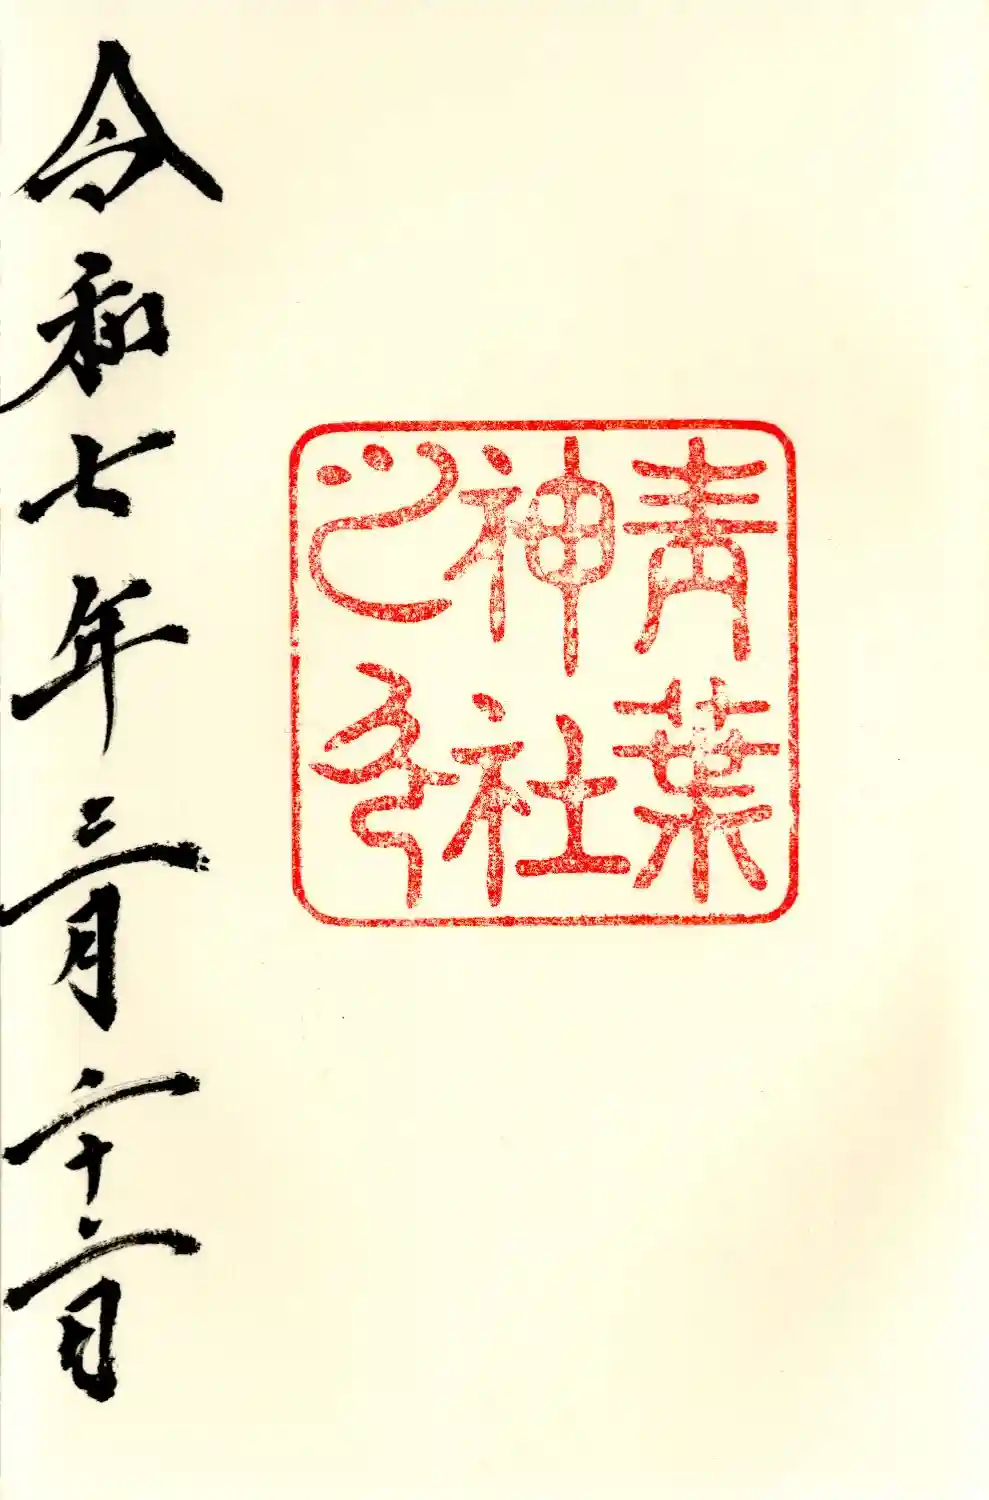 青葉
神社
之印
令和七年三月二十二日